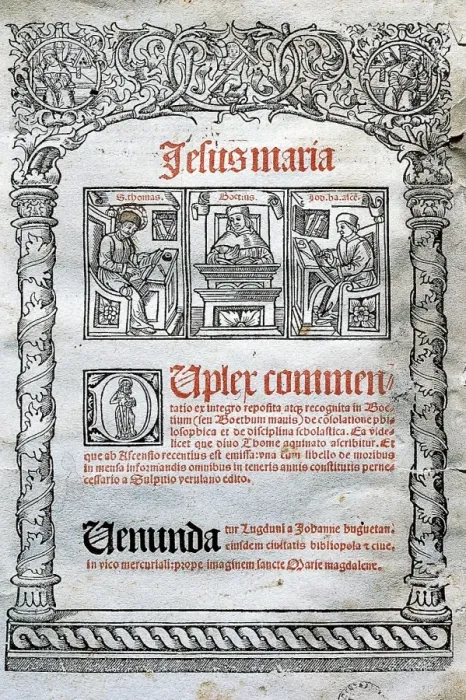 Jesus maria
S. thomas. Boetius. Jod. ba. asce.
Duplex commen⸗
tatio ex integro reposita atq₃ recognita in Boe⸗
tium (seu Boethum mauis) de cōsolatione phi⸗
losophica et de disciplina scholastica. Ea vide⸗
licet que diuo Thome aquinato ascribitur. Et
que ab Ascensio recentius est emissa: vna cum libello de moribus
in mensa informandis omnibus in teneris annis constitutis perne⸗
cessario a Sulpitio verulano edito.
Uenundatur Lugduni a Johanne huguetan.
eiusdem ciuitatis bibliopola ⁊ ciue,
in vico mercuriali: prope imaginem sancte Marie magdalene.